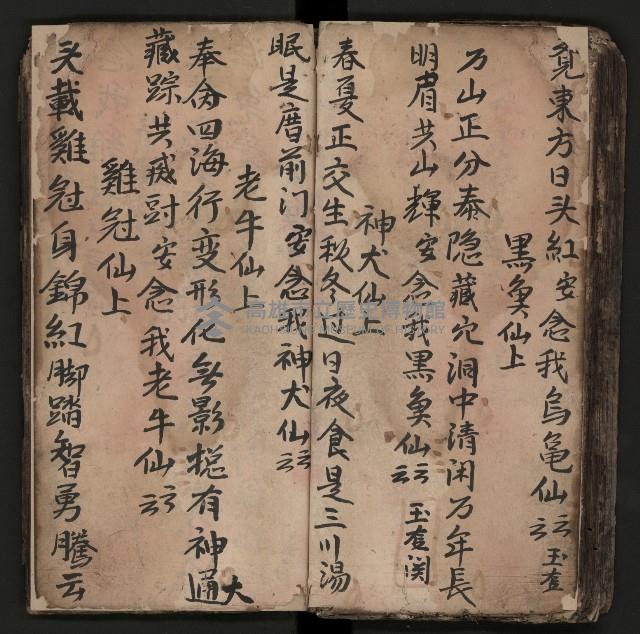 東方日头紅安念我烏亀仙云云 玉查
黑魚仙上
万山正分泰隐藏穴洞中清闲万年長
明眉共山輝安念我黑魚仙云云 玉查関
神犬仙上
春夏正交生秋冬 日夜食是三川湯
眠是磨前门安念我神犬仙云云
老牛仙上
奉 四海行变形化無影搃有神通大
藏踪共 安念我老牛仙云云
雞冠仙上
头載雞冠身錦紅脚踏智勇騰云
高雄市立歷史博物館
KAOHSIUNG MUSEUM OF HISTORY